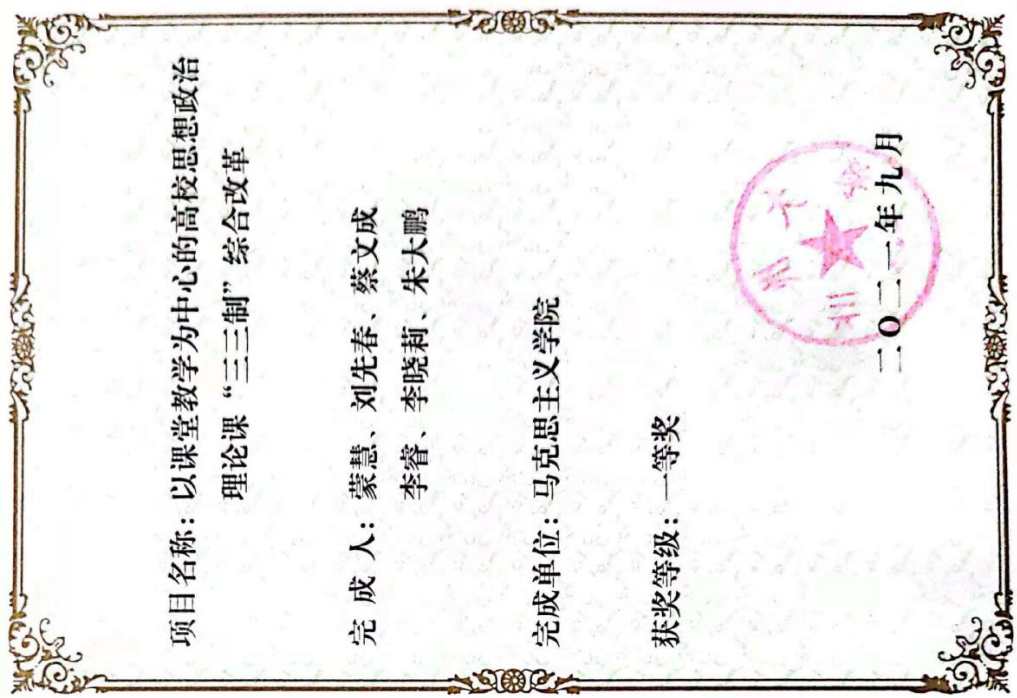 项目名称：以课堂教学为中心的高校思想政治
理论课“三三制”综合改革
完 成 人：蒙慧、刘先春、蔡文成
李睿、李晓莉、朱大鹏
完成单位：马克思主义学院
获奖等级：一等奖
兰州大学
二〇二一年九月